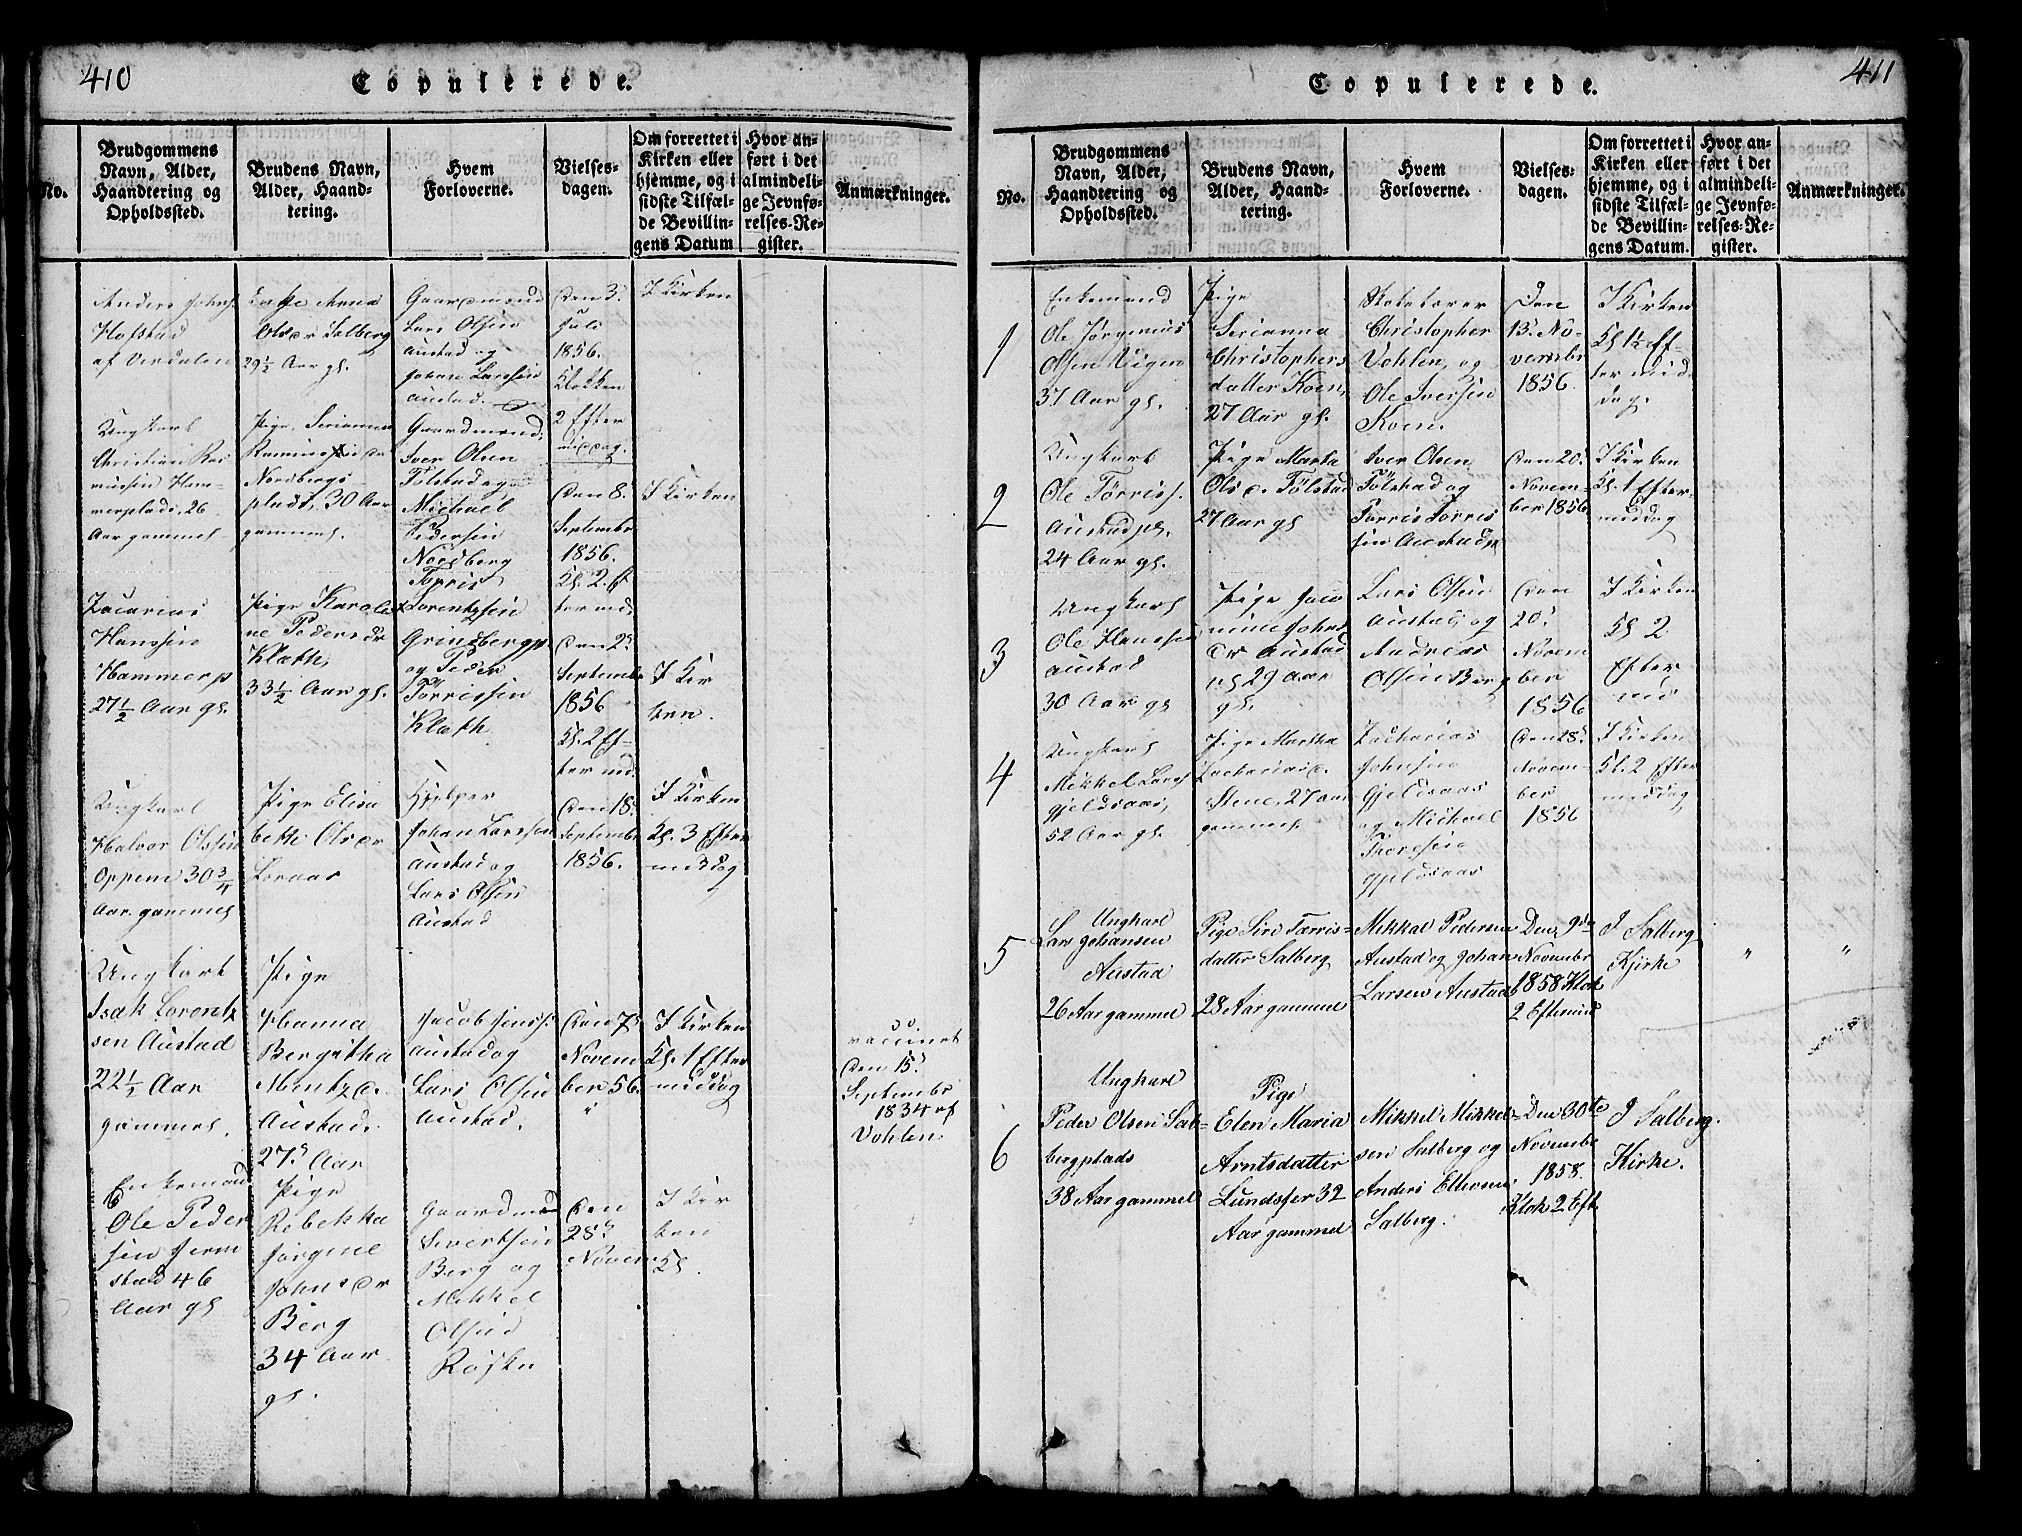 410
Copulerede.
No.
Brudgommens
Navn, Alder,
Haandtering og
Opholdssted.
Brudens Navn,
Alder, Haand-
tering.
Hvem
Forloverne.
Vielses-
dagen.
Om forrettet i
Kirken eller
hjemme, og i
sidste Tilfæl-
de Bevillin-
gens Datum
Hvor an-
ført i det
almindeli-
ge Jevnfø-
relses-Re-
gister.
Anmærkninger.
Anders Johns.
Hofstad
af Verdalen
Enke Anna
Olsdr Salberg
29½ Aar gl.
Gaardmand
Lars Olsen
Austad og
Johan Larssen
Austad.
Den 3.
Juli
1856.
Klokken
2 Efter
middag.
I Kirken
Ungkarl
Christian Ras
mussen Ham-
merplads, 26
Aar gammel
Pige, Serianna
Rasmusdr
Nordbergs
plads, 30 Aar
gammel.
Gaardmand,
Iver Olsen
Følstad og
Michael
Pedersen
Nordberg
Den 8.
September
1856.
Kl. 2. Ef
ter md.
I Kirken
Zacarias
Hanssen
Hammerp
27½ Aar gl.
Pige Karoli
ne Pedersdr
Klæth,
33½ Aar gl.
Torris
Lorentzsen
Grindbergpl
og Peder
Törrissen
Klæth
Den 2
September
1856
Kl. 2 Ef-
ter md.
I Kir
ken.
Ungkarl
Halvor Olssen
Oppem 30 3/4
Aar gammel
Pige Elisa
beth Olsdr
Loraas
Hjelper
Johan Larssen
Austad og
Lars Olsen
Austad
Den 18.
September
1856.
I Kirken
Kl. 3 Efter
middag
Ungkarl
Isak Lorentz
sen Austad
22½ Aar
gammel.
Pige
Hanna
Bergitha
Mentzd.
Austad.
27 Aar
Jacob Jenss.
Austad og
Lars Olsen
Austad.
Den 7
Novem
ber 56.
I Kirken
Kl. 1 Efter
middag
vaccinet
Den 15.
September
1834 af
Vohlen.
6
Enkemand
Ole Peder
sen Jerm
stad 46
Aar gl
Pige
Rebekka
Jørgine
Johnsdr
Berg
34 Aar
gl.
Gaardmd
Sivertsen
Berg og
Mikkel
Olsen
Røske
Den
28
Novem
I Kir
ken
Kl.
411
Copulerede.
No.
Brudgommens
Navn, Alder,
Haandtering og
Opholdssted.
Brudens Navn,
Alder, Haand-
tering.
Hvem
Forloverne.
Vielses-
dagen.
Om forrettet i
Kirken eller
hjemme, og i
sidste Tilfæl-
de Bevillin-
gens Datum.
Hvor an-
ført i det
almindeli-
ge Jevnfø-
relses-Re-
gister.
Anmærkninger.
1
Enkemand
Ole Jørgenius
Olsen Vigen
37 Aar gl.
Pige
Serianna
Christophers
datter Koen,
27 Aar gl.
Skolelærer
Christopher
Vohlen, og
Ole Iversen
Koen.
Den
13. No-
vember
1856.
I Kirken
Kl 1½ Ef-
ter mid
dag.
2
Ungkarl
Ole Törriss.
Austadpl.
24 Aar gl.
Pige Marta
Olsd. Følstad
27 Aar gl
Iver Olsen
Følstad og
Torris Torris
sen Austadpl
Den 20.
Novem-
ber 1856
I Kirken
Kl. 1 Efter-
middag
3
Ungkarl
Ole Hanssen
Austad
30 Aar gl
Pige Jaco
mine Johns
dr Austad
pl 29 Aar
gl.
Lars Olsen
Austad, og
Andreas
Olsen Berg
Den
20.
Novem
ber
1856
I Kirken
Kl 2
Efter
md
4
Ungkarl
Mikkel Larss
Gjeldsaas,
52 Aar gl.
Pige Martha
Zachariasd.
Stene, 27 Aar
gammel.
Zacharias
Johnsen
Gjeldsaas
og Michael
Gjeldsaas
Den 28.
Novem-
ber
1856
I Kirken
Kl. 2 Efter
middag
5
Ungkarl
Lars Johansen
Austad
26 Aar gammel
Pige Siri Tørris-
datter Salberg
28 Aar gammel
Mikkal Pedersen
Austad og Johan
Larsen Austad
Den 9de
Novembr
1858 Klok
2 Eftermid
I Salberg
Kjirke
"
"
6
Ungkarl
Peder Olsen Sal-
bergplads
38 Aar gammel
Pige
Elen Maria
Arntsdatter
32
Aar gammel
Mikkel Mikkel-
sen Salberg og
Anders Ellevsen
Salberg.
Den 30te
Novembe
1858.
Klok 2 Eft.
I Salberg.
Kirke.